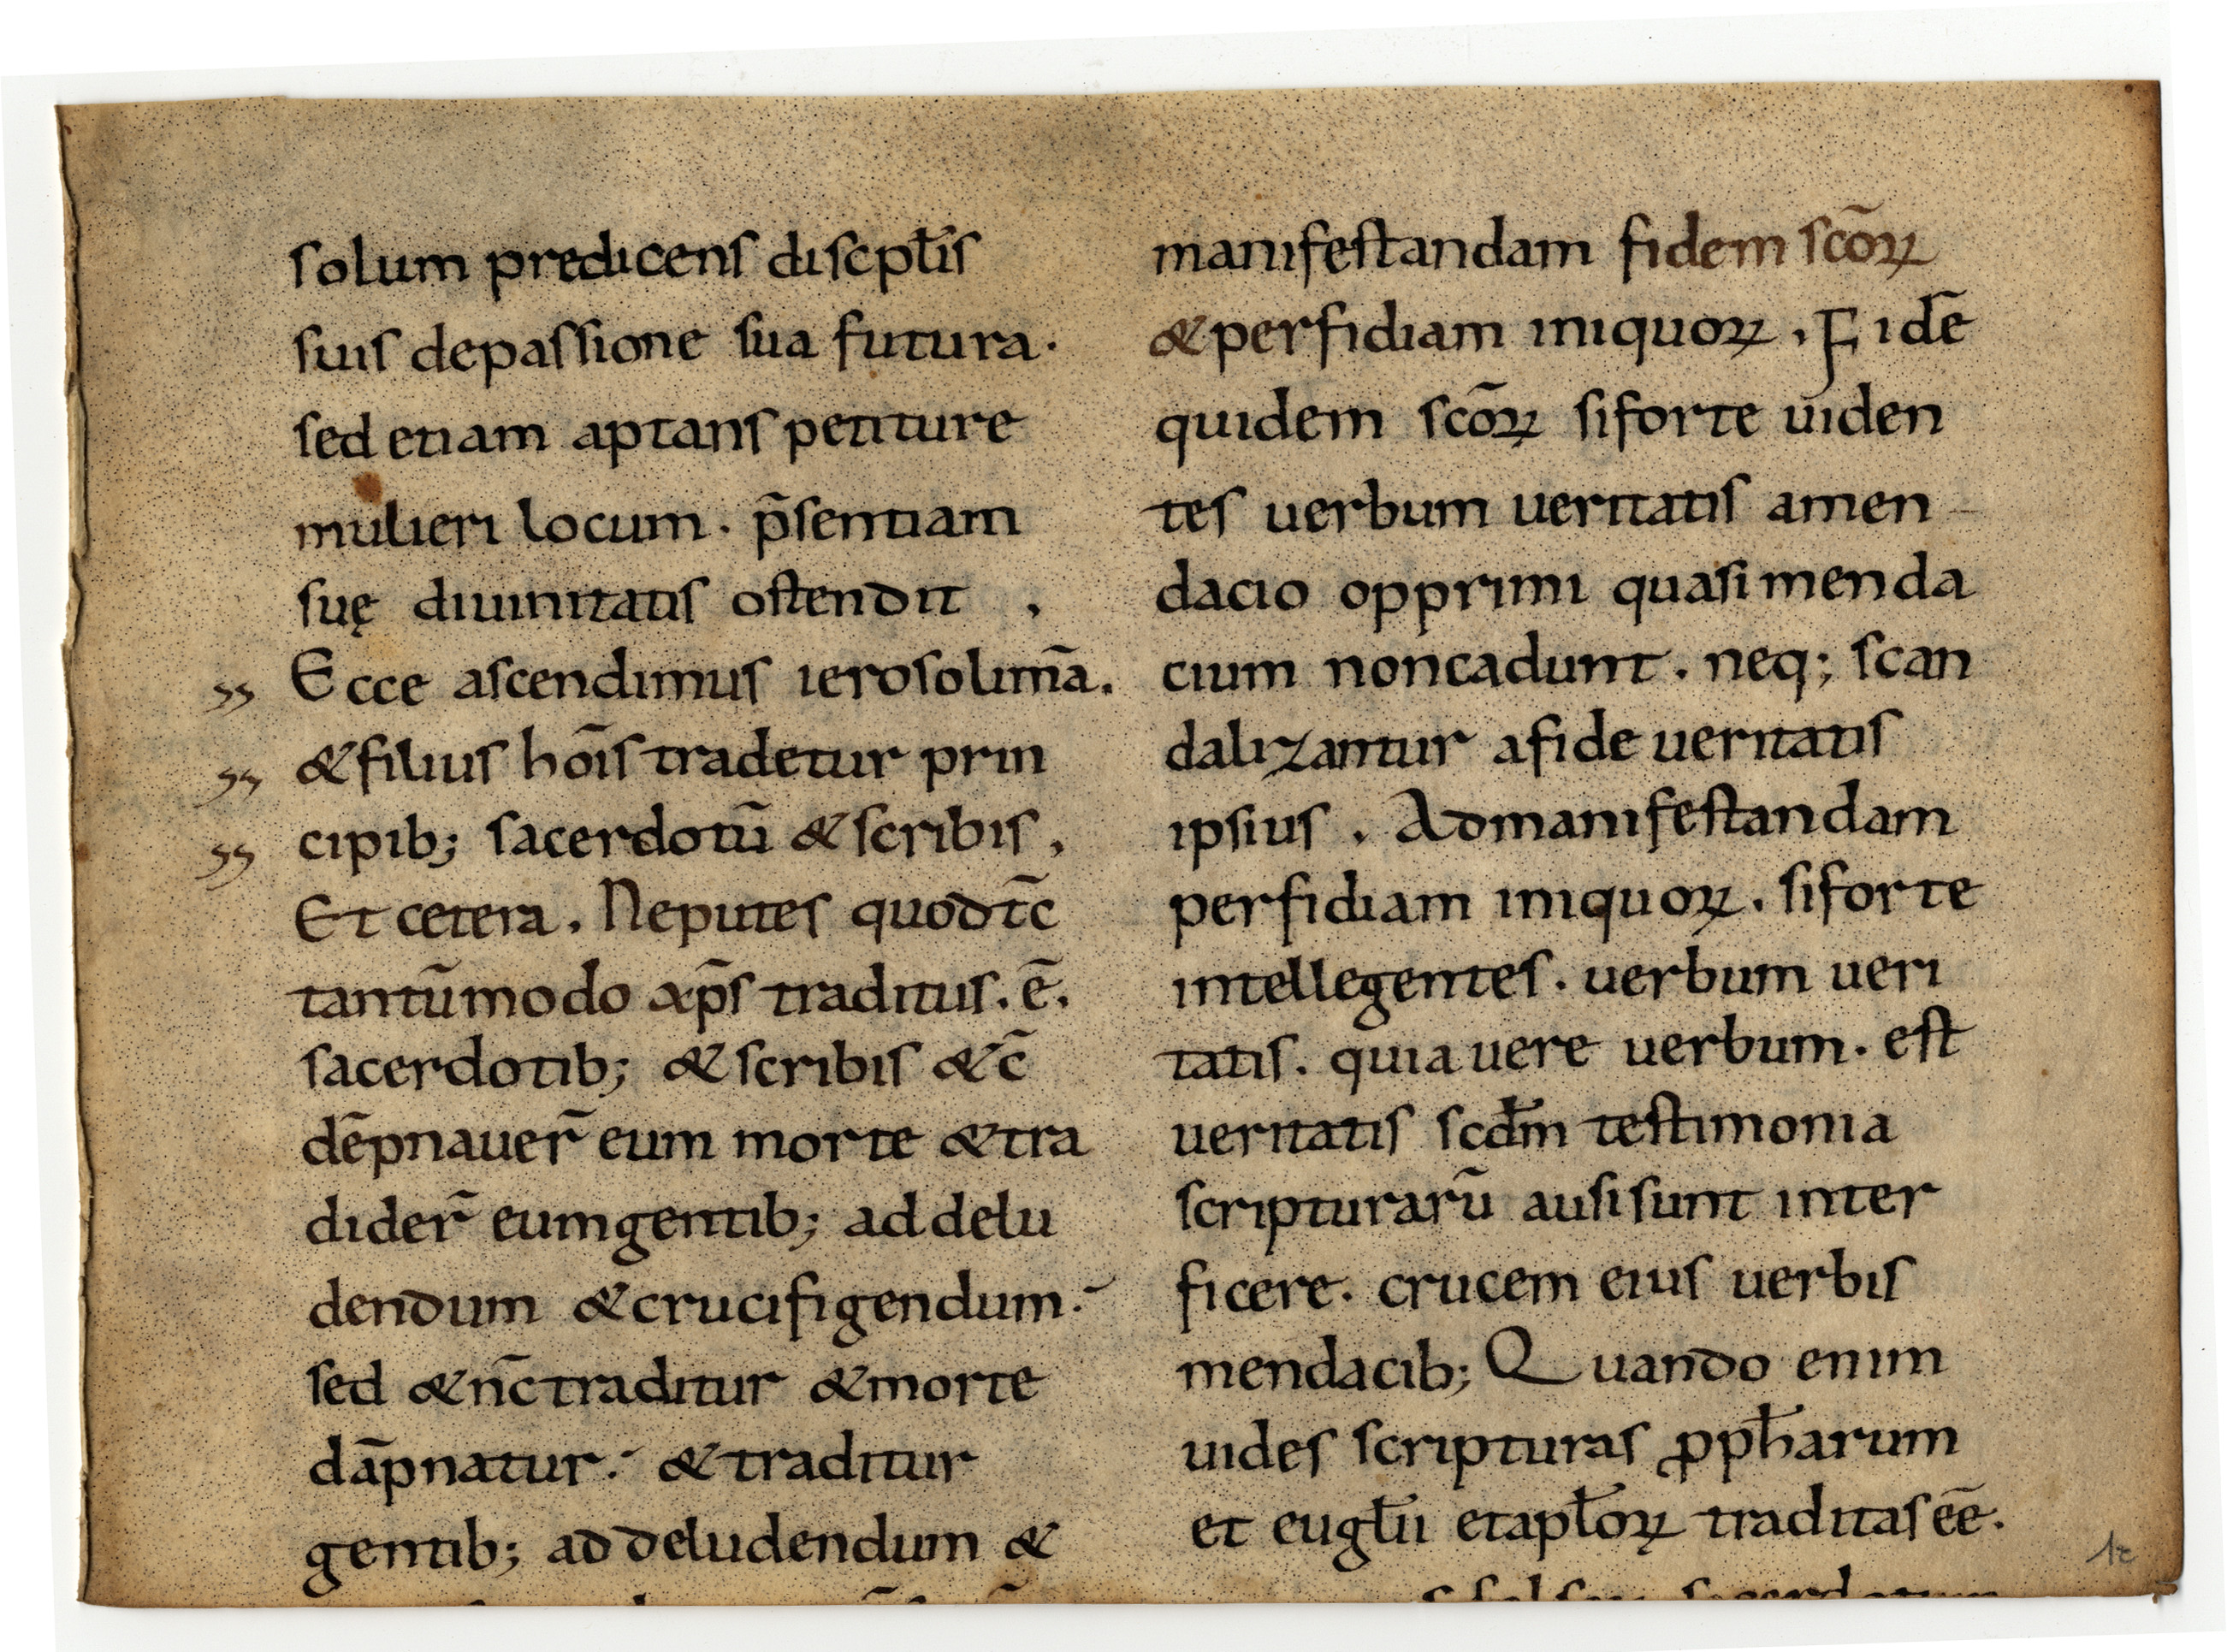 solum predicens discpl̄is
suis depassione sua futura·
sed etiam aptans petiture
mulieri locum· p̄sentiam
suę diuinitatis ostendit ,
" Ecce ascendimus ierosolimā.
" &filius hōis tradetur prin
" cipib; sacerdotū &scribis,
Et cetera. Neputes quodtc̄
tantūmodo xp̄s traditus. ē.
sacerdotib; &scribis &c̄
dēpnauer̄ eum morte &tra
dider̄ eumgentib; addelu
dendum &crucifigendum.
sed &nc̄traditur &morte
dāpnatur. &traditur
gentib; addeludendum &
manifestandam fidem scōꝝ
&perfidiam iniquoꝝ. Fidē
quidem scōꝝ siforte uiden
tes uerbum ueritatis amen
dacio opprimi quasimenda
cium noncadunt. neq; scan
dalizantur afide ueritatis
ipsius. Admanifestandam
perfidiam iniquoꝝ. siforte
intellegentes. uerbum ueri
tatis. quia uere uerbum. est
ueritatis scđm testimonia
scripturarū ausisunt inter
ficere. crucem eius uerbis
mendacib; Quando enim
uides scripturas ꝓpħarum
et eugl̄ii etapl̄oꝝ traditas eē.
1r